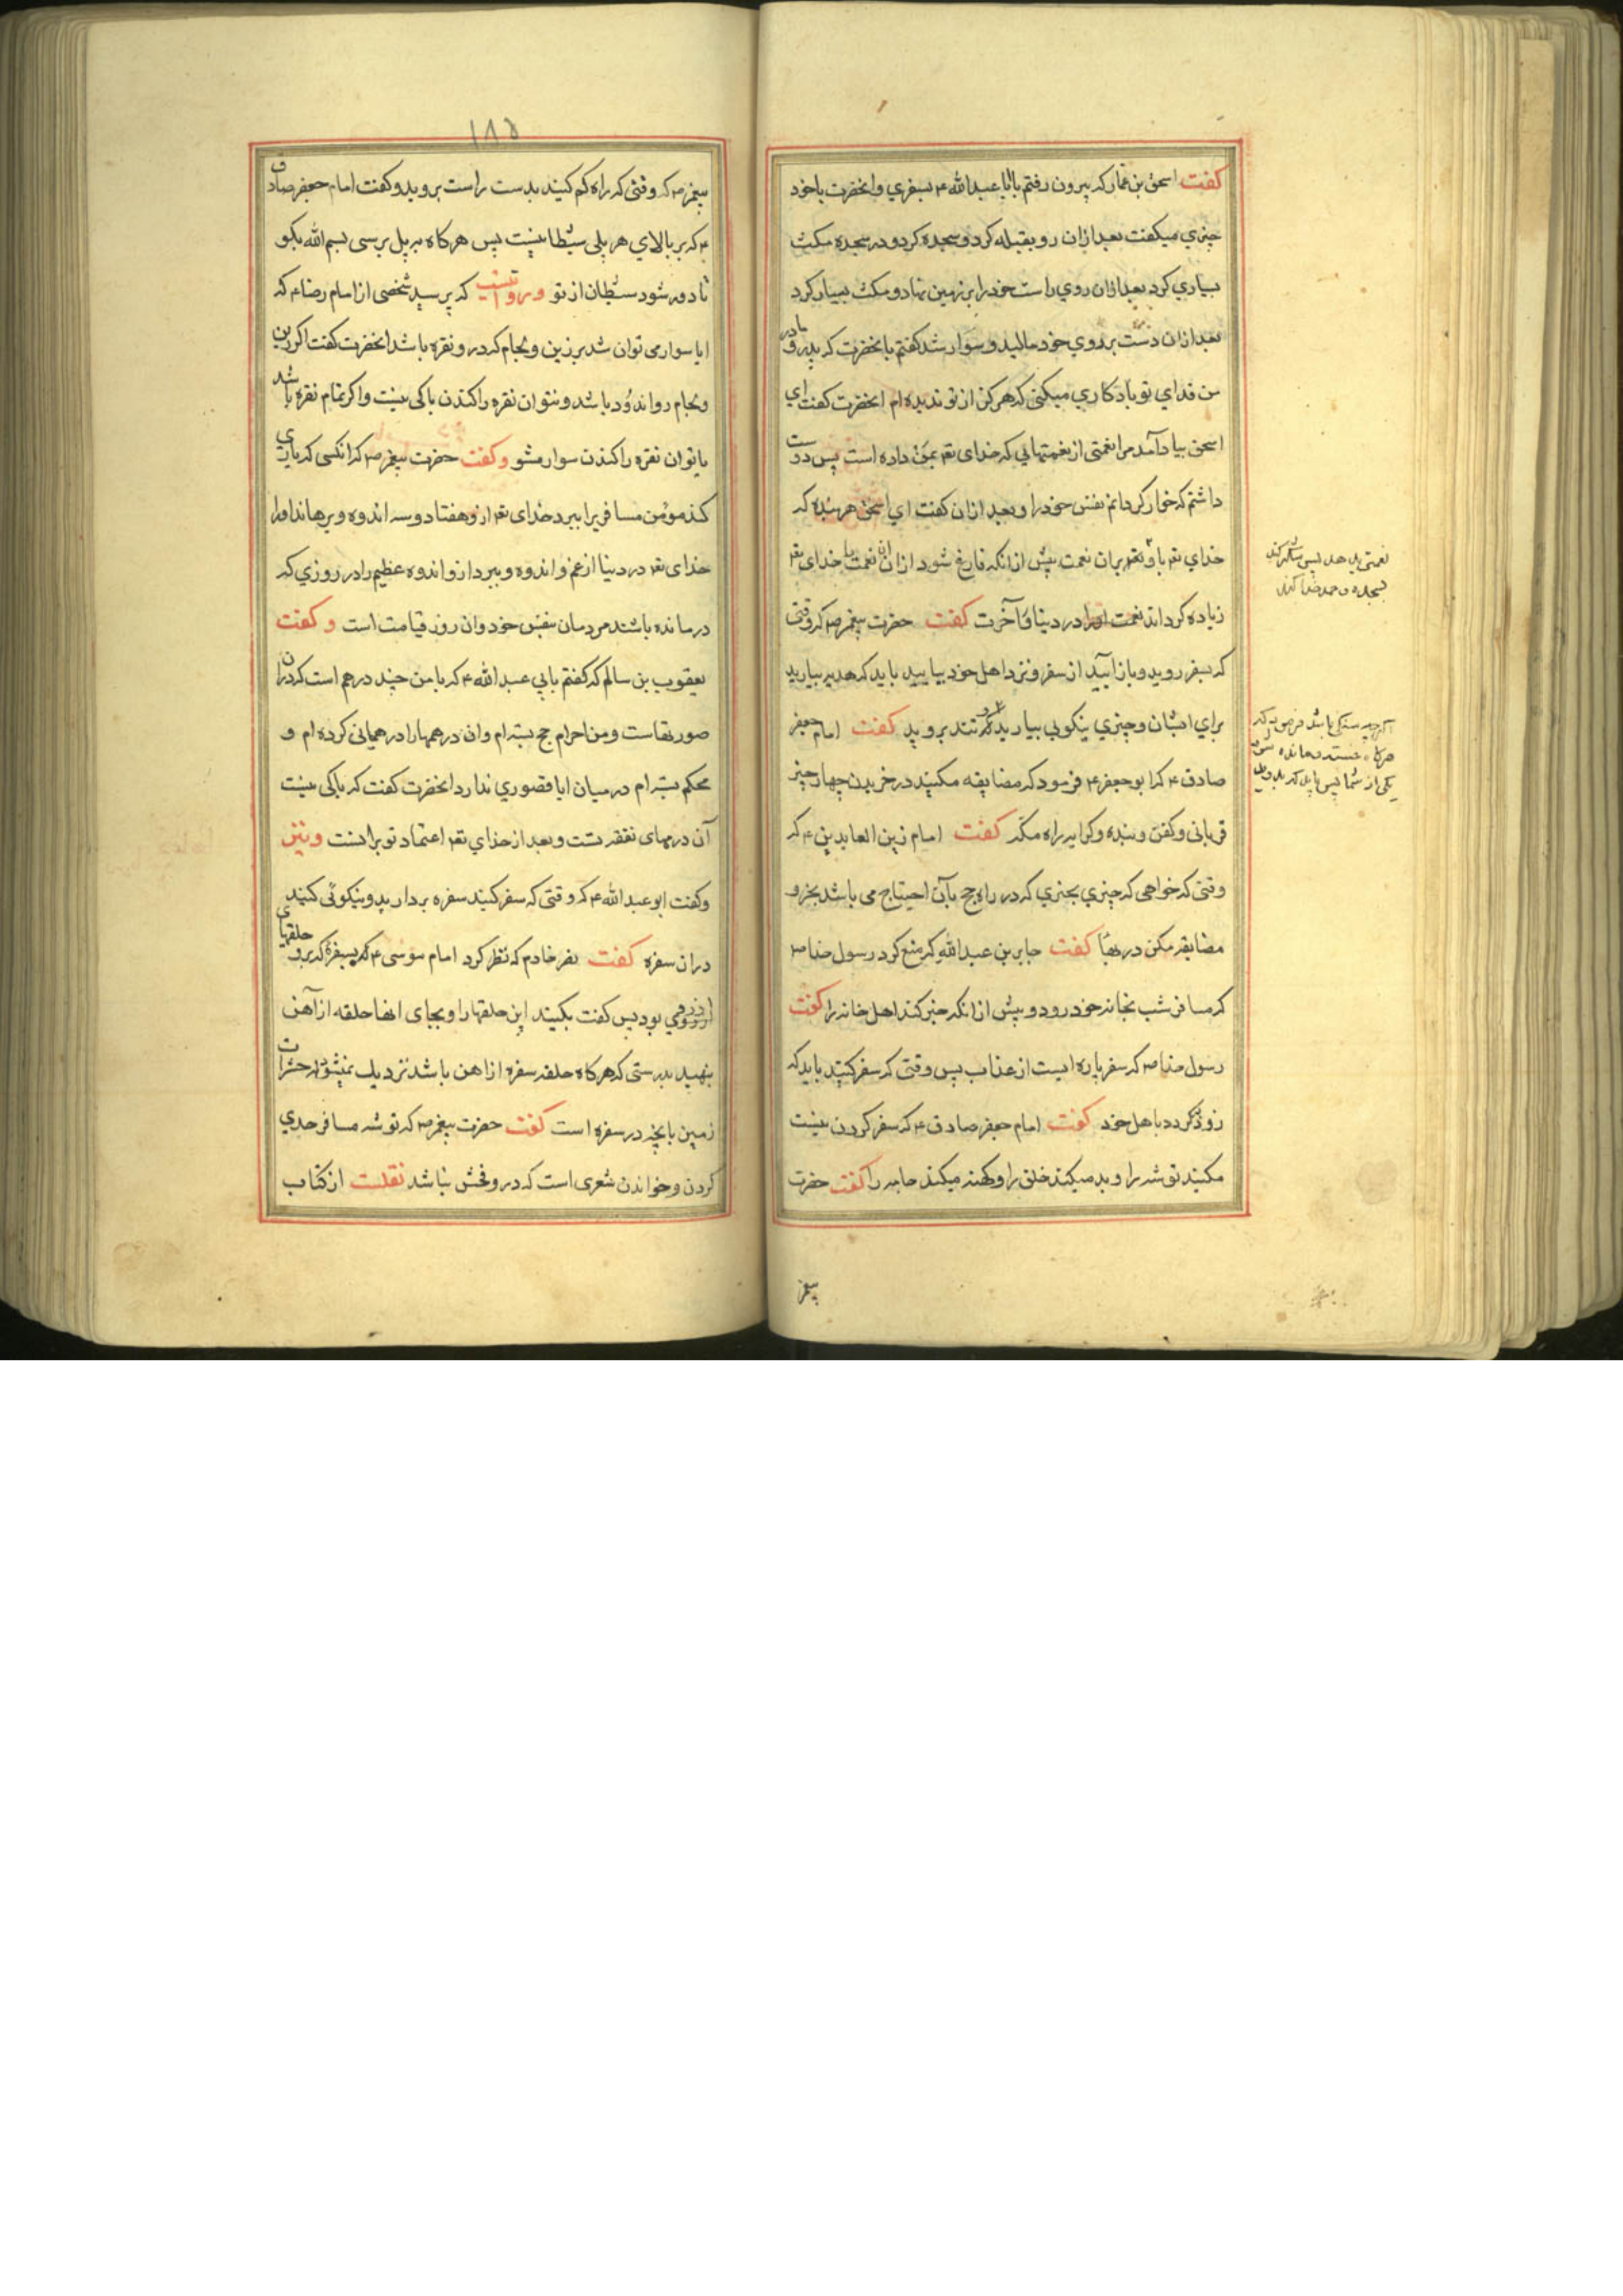 کفت اسحق بن عمار که بیرون رفتم با ابا عبدالله ۴ بسفري وانحضرت باخود
چیزي میکفت بعد ازان رو بقبله کرد و سجده کرد و در سجده مکث
بسیاري کرد بعد ازان روي راست خود را بر زمین نهاد و مکث بسیار کرد
بعد ازان دست بر روي خود مالید و سوار شد کفتم بانحضرت که پدر و مادر
من فداي تو باد کاري میکنی که هرکز از تو ندیده ام انحضرت کفت اي
اسحق بیاد آمد مرا نعمتی از نعمتهایی که خدای تعم بمن داده است پس دوست
داشتم که خوار کردانم نفس خود را و بعد ازان کفت اي اسحق هر بنده که
خداي تعم باو نعم بران نعمت پیش از انکه فارغ شود ازان نعمت خدای تعم
زیاده کرداند نعمت اورا در دنیا و آخرت کفت حضرت پیغمبر صم که وقتی
که بسفر روید و باز آیید از سفر و نزد اهل خود بیایید باید که هدیه بیارید
براي ایشان و چیزي نیکویی بیارید که تند بروید کفت امام جعفر
صادق ۴ که ابو جعفر ۴ فرمود که مضایقه مکنید در خریدن چهار چیز
قربانی و کفن و بنده و کرایه راه مکه کفت امام زین العابدین ۴ که
وقتی که خواهی که چیزي بخري که در راه حج بآن احتیاج می باشد بخر و
مضایقه مکن در بها کفت جابر بن عبدالله که منع کرد رسول خدا صم
که مسافر شب بخانه خود رود و پیش از انکه خبر کند اهل خانه را کفت
رسول خدا صم که سفر پاره ایست از عذاب پس وقتی که سفر کنید باید که
زود کردد باهل خود کفت امام جعفر صادق ۴ که سفر کردن نیست
مکنید توشه را و بد میکند خلق را و کهنه میکند جامه را کفت حضرت
نعمتی بدهد پس شکر کند
بسجده و حمد خدا کند
اکرچه سنکی باشد فرمود که
هرکاه خسته و مانده شود
یکی از شما پس باید که بدود
پیغمبر
۱۸۵
پیغمبر صم که وقتی که راه کم کنید بدست راست بروید و کفت امام جعفر صادق
۴ که بر بالاي هر پلی شیطانیست پس هرکاه بر پل برسی بسم الله بکو
تا دور شود شیطان از تو و روایتست که پرسید شخصی از امام رضا ۴ که
ایا سوار می توان شد بر زین و لجام که در و نقره باشد انحضرت کفت اکر زین
و لجام رو اندود باشد و نتوان نقره را کندن باکی نیست و اکر تمام نقره باشد
یا توان نقره را کندن سوار مشو و کفت حضرت پیغمبر صم که انکسی که یاري
کند مومن مسافر را ببرد خدای تعم ازو هفتاد و سه اندوه و برهاند اورا
خدای تعم در دنیا از غم و اندوه و ببرد ازو اندوه عظیم را در روزي که
درمانده باشند مردمان بنفس خود و ان روز قیامت است و کفت
یعقوب بن سالم که کفتم بابي عبدالله ۴ که با من چند درهم است که دران
صورتهاست و من احرام حج بسته ام و ان درهمها را در همیانی کرده ام و
محکم بسته ام در میان ایا قصوري ندارد انحضرت کفت که باکی نیست
آن درمهای نفقه تست و بعد از خداي تعم اعتماد تو برانست و نیز
و کفت ابو عبدالله ۴ که وقتی که سفر کنید سفره بردارید و نیکوئی کنید
دران سفره کفت نصر خادم که نظر کرد امام موسی ۴ که بسفرۀ که برو حلقهاي
از روي بود پس کفت بکنید این حلقها را و بجای انها حلقه از آهن
بنهید بدرستی که هرکاه حلقه سفره از اهن باشد نزدیك نمیشود حشرات
زمین بانچه در سفره است کفت حضرت پیغمبر صم که توشه مسافر حدي
کردن و خواندن شعری است که درو فحش نباشد نقلست از کتاب